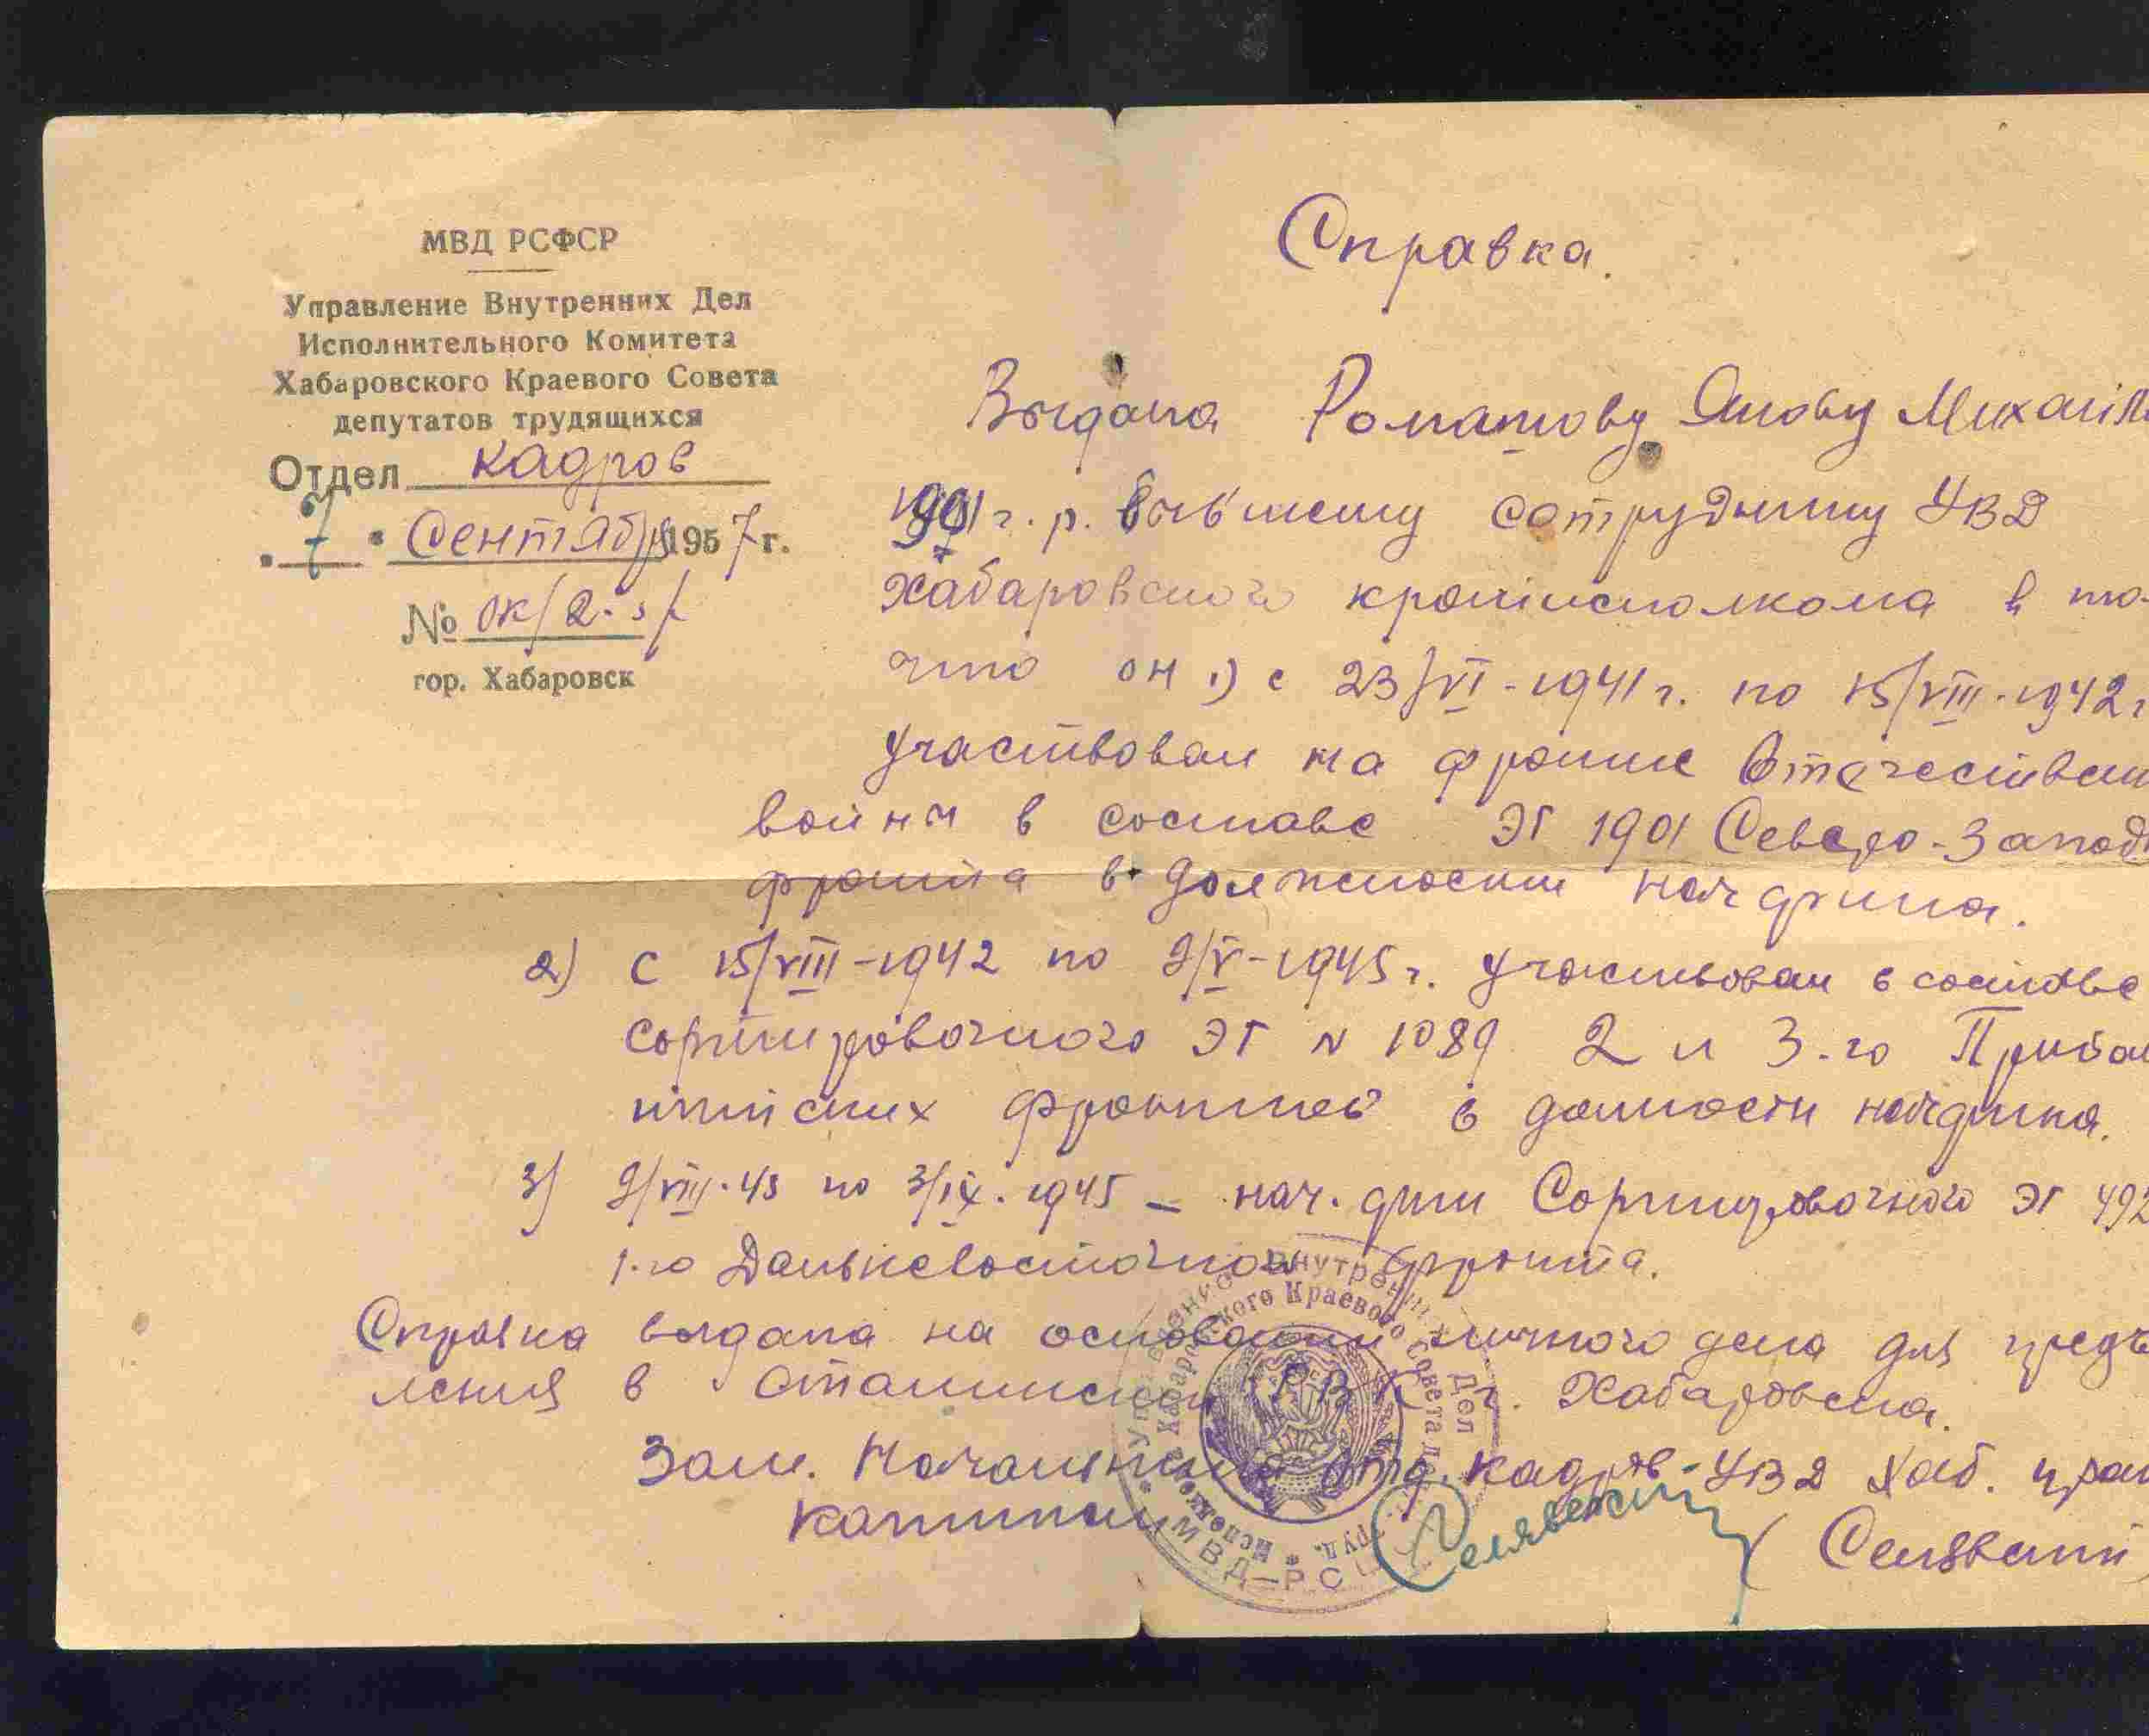 МВД РСФСР
Управление Внутренних Дел
Исполнительного Комитета
Хабаровского Краевого Совета
депутатов трудящихся
Отдел кадров
"7" Сентября 1957 г.
№ ОК/2-
гор. Хабаровск
Справка.
Выдана Романову Якову Михайл
г. р. бывшему сотруднику УВД
Хабаровского крайисполкома в то
что он 1) с 23/VI-1941 г. по 15/VIII-1942 г
участвовал на фронте Отечествен
войны в составе ЭГ 1901 Северо-Запад
фронта в должности начфина.
2) С 15/VIII-1942 по 9/V-1945 г. участвовал в составе
сортировочного ЭГ N 1089 2 и 3-го Прибал
тийских фронтов в должности начфина.
3) 9/VIII-45 по 3/IX-1945 – нач. фин Сортировочного ЭГ 492
1-го Дальневосточного фронта.
Справка выдана на основании личного дела для предъ
ления в Сталинский РВК г. Хабаровска.
Зам. Начальника отд. кадров УВД Хаб. края
капитан
(Селявский)
Управление Внутренних Дел
Хабаровского Краевого Совета деп. труд.
Исполком
МВД–РС